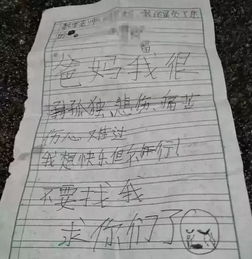 爸妈我很
孤独、悲伤、痛苦
伤心、难过
我想快乐但不行!
不要找我
求你们了